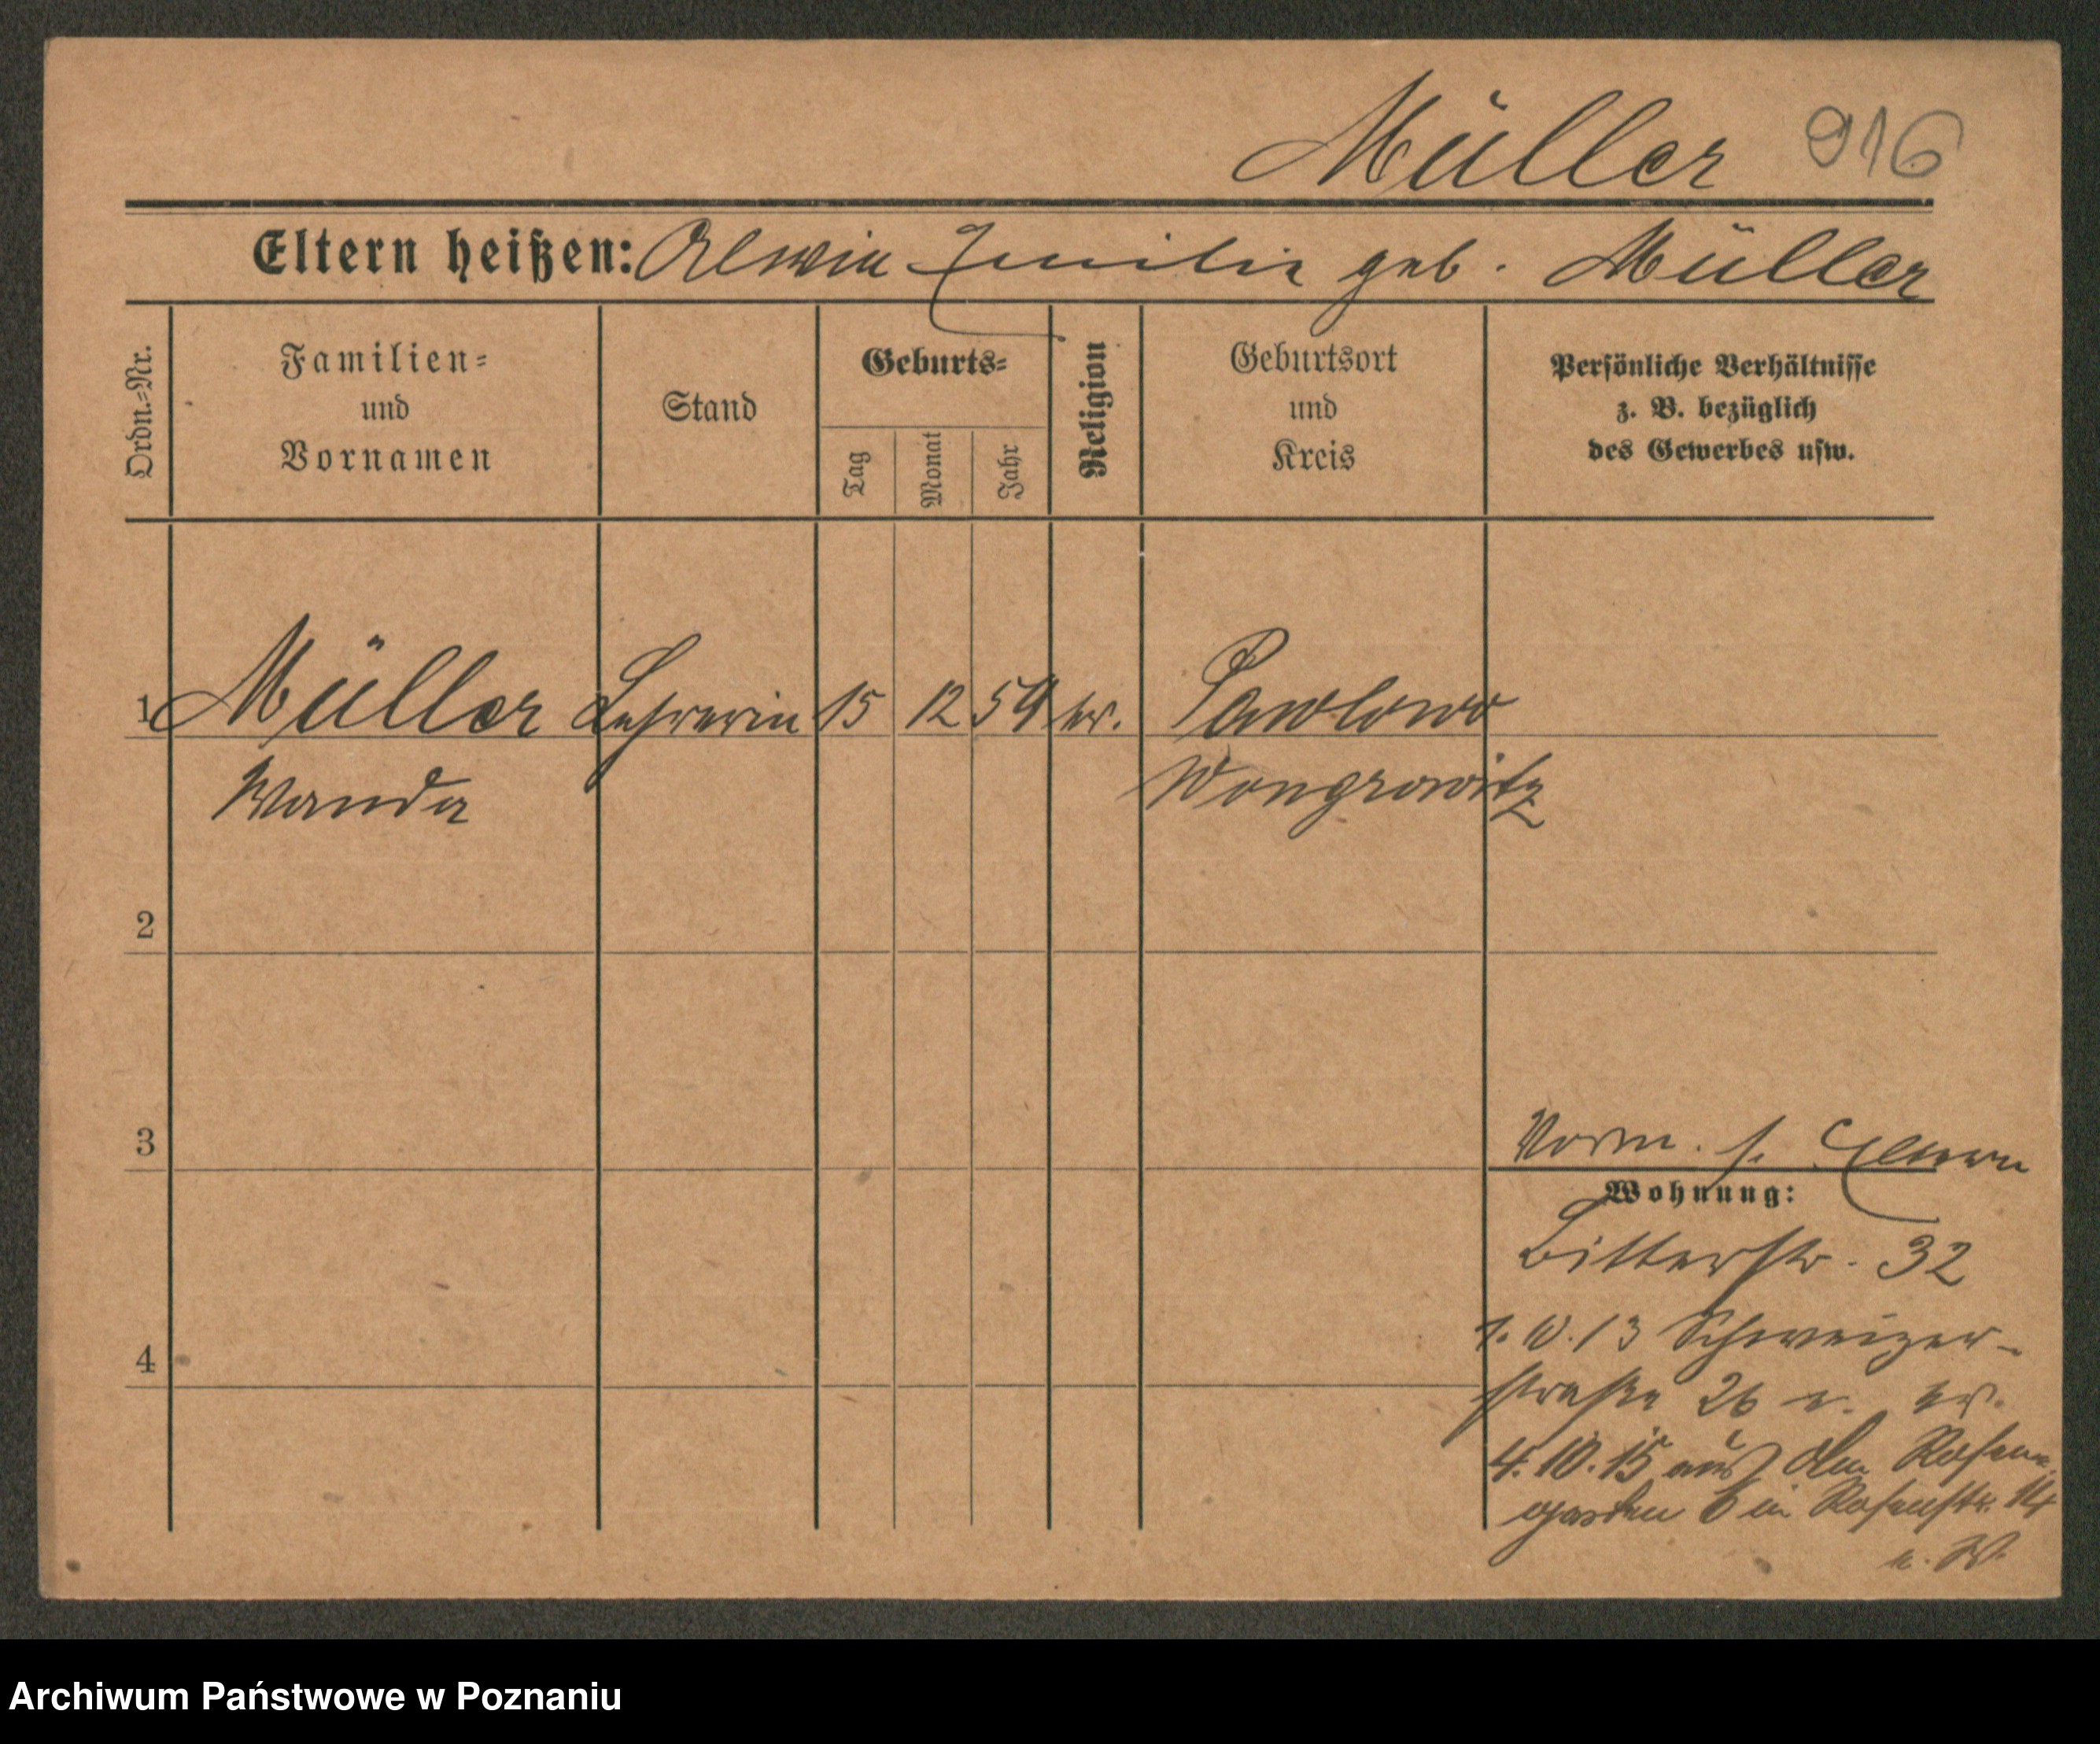 Müller 916
Eltern heißen: Alwin Emilie geb. Müller
Ordn.-Nr.
Familien-
und
Vornamen
Stand
Geburts-
Tag
Monat
Jahr
Religion
Geburtsort
und
Kreis
Persönliche Verhältnisse
z. B. bezüglich
des Gewerbes usw.
1 Müller Lehrerin 15 12 54 ev. Pawlowo
Wanda Wongrowitz
2
3
4
Vorm. s. Eltern
Wohnung:
Bitterstr. 32
1.10.13 Schweizer-
straße 26
4.10.15 aus Am Rosen-
garten 6 in Rosenstr. 14
Archiwum Państwowe w Poznaniu